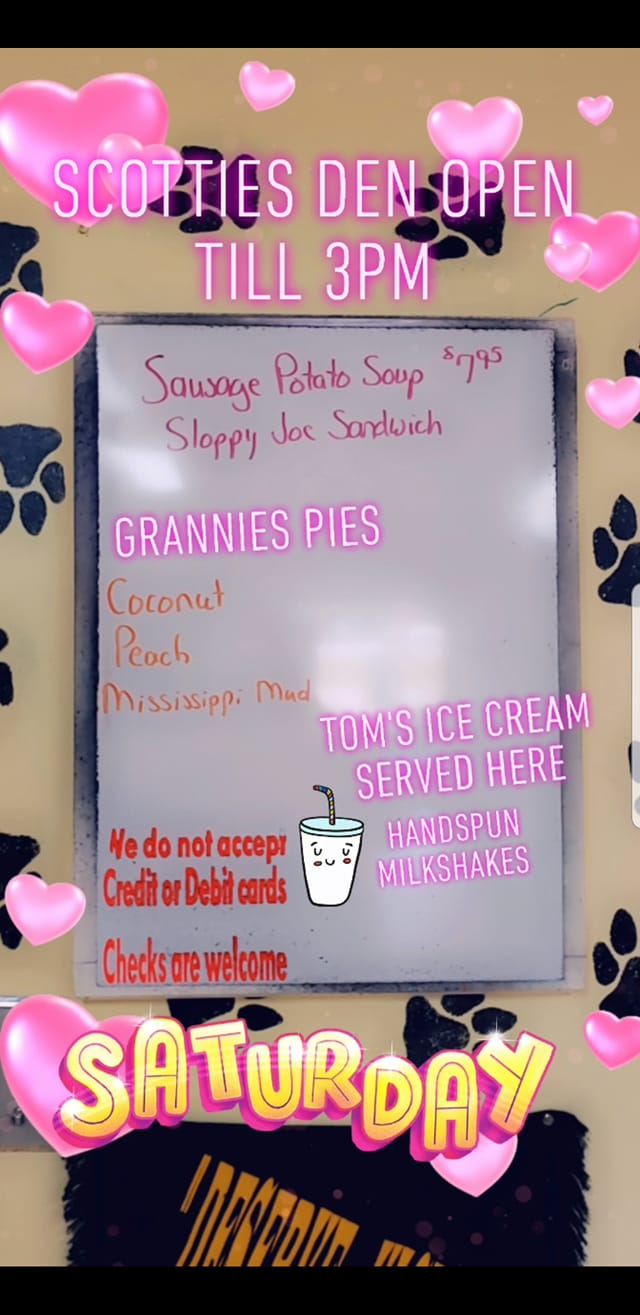 SCOTTIES DEN OPEN
TILL 3PM
Sausage Potato Soup $7.95
Sloppy Joe Sandwich
GRANNIES PIES
Coconut
Peach
Mississippi Mud
TOM'S ICE CREAM
SERVED HERE
HANDSPUN
MILKSHAKES
We do not accept
Credit or Debit cards
Checks are welcome
SATURDAY
"DESERVE